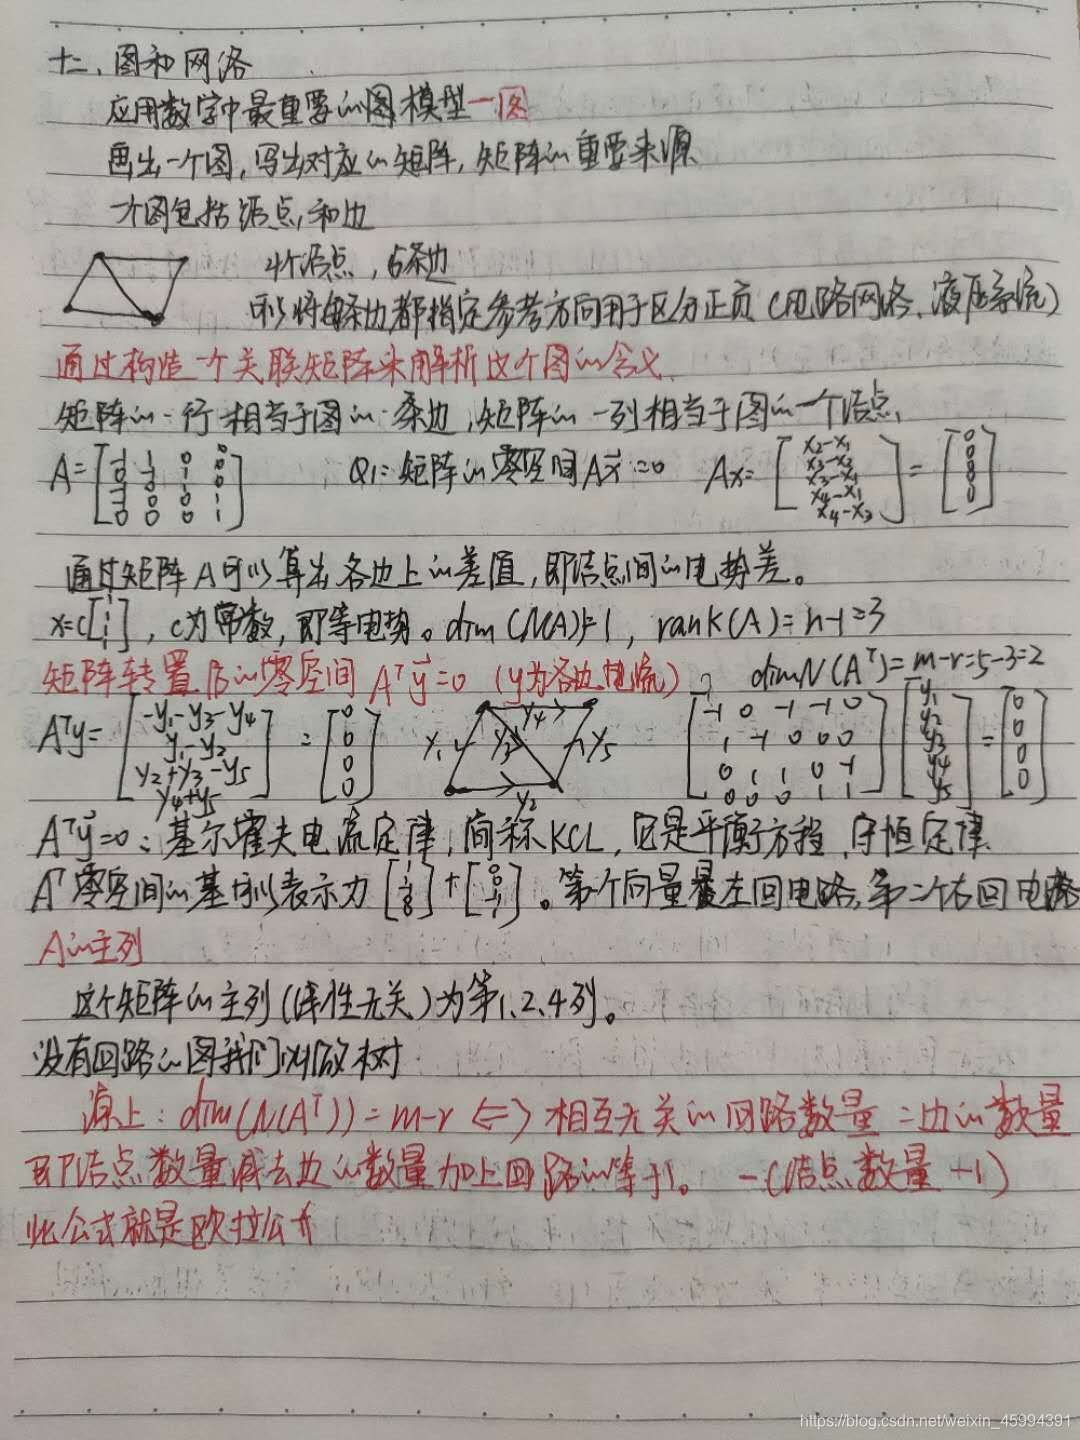 十二、图和网络
应用数学中最重要的图模型—图
画出一个图,写出对应的矩阵,矩阵的重要来源
一个图包括结点和边
4个结点,6条边
可以将每条边都指定参考方向用于区分正负(电路网络、液压系统)
通过构造一个关联矩阵来解析这个图的含义
矩阵的一行相当于图的一条边,矩阵的一列相当于图的一个结点
A= Q1:矩阵的零空间Ax=0 Ax= [x2-x1 x3-x2 x3-x1 x4-x1 x4-x3] = [0 0 0 0 0]
通过矩阵A可以算出各边上的差值,即结点间的电势差。
x=c[1 1 1 1],c为常数,即等电势。dim(N(A))=1,rank(A)=n-1=3
矩阵转置后的零空间 Aᵀy=0(y为各边电流) dimN(Aᵀ)=m-r=5-3=2
Aᵀy= [-y1-y3-y4 y1-y2 y2+y3-y5 y4+y5] = [0 0 0 0] y1 y2 y3 y4 y5 [-1 0 -1 -1 0 1 -1 0 0 0 0 1 1 0 -1 0 0 0 1 1] [y1 y2 y3 y4 y5] = [0 0 0 0]
Aᵀy=0:基尔霍夫电流定律,简称KCL,它是平衡方程,守恒定律
Aᵀ零空间的基可以表示为 + 。第一个向量是左回电路,第二个右回电路
A的主列
这个矩阵的主列(线性无关)为第1、2、4列。
没有回路的图我们叫做树
源上:dim(N(Aᵀ))=m-r ⇔ 相互无关的回路数量=边的数量
-(结点数量-1)
即结点数量减去边的数量加上回路的等于1。
此公式就是欧拉公式
https://blog.csdn.net/weixin_45994391